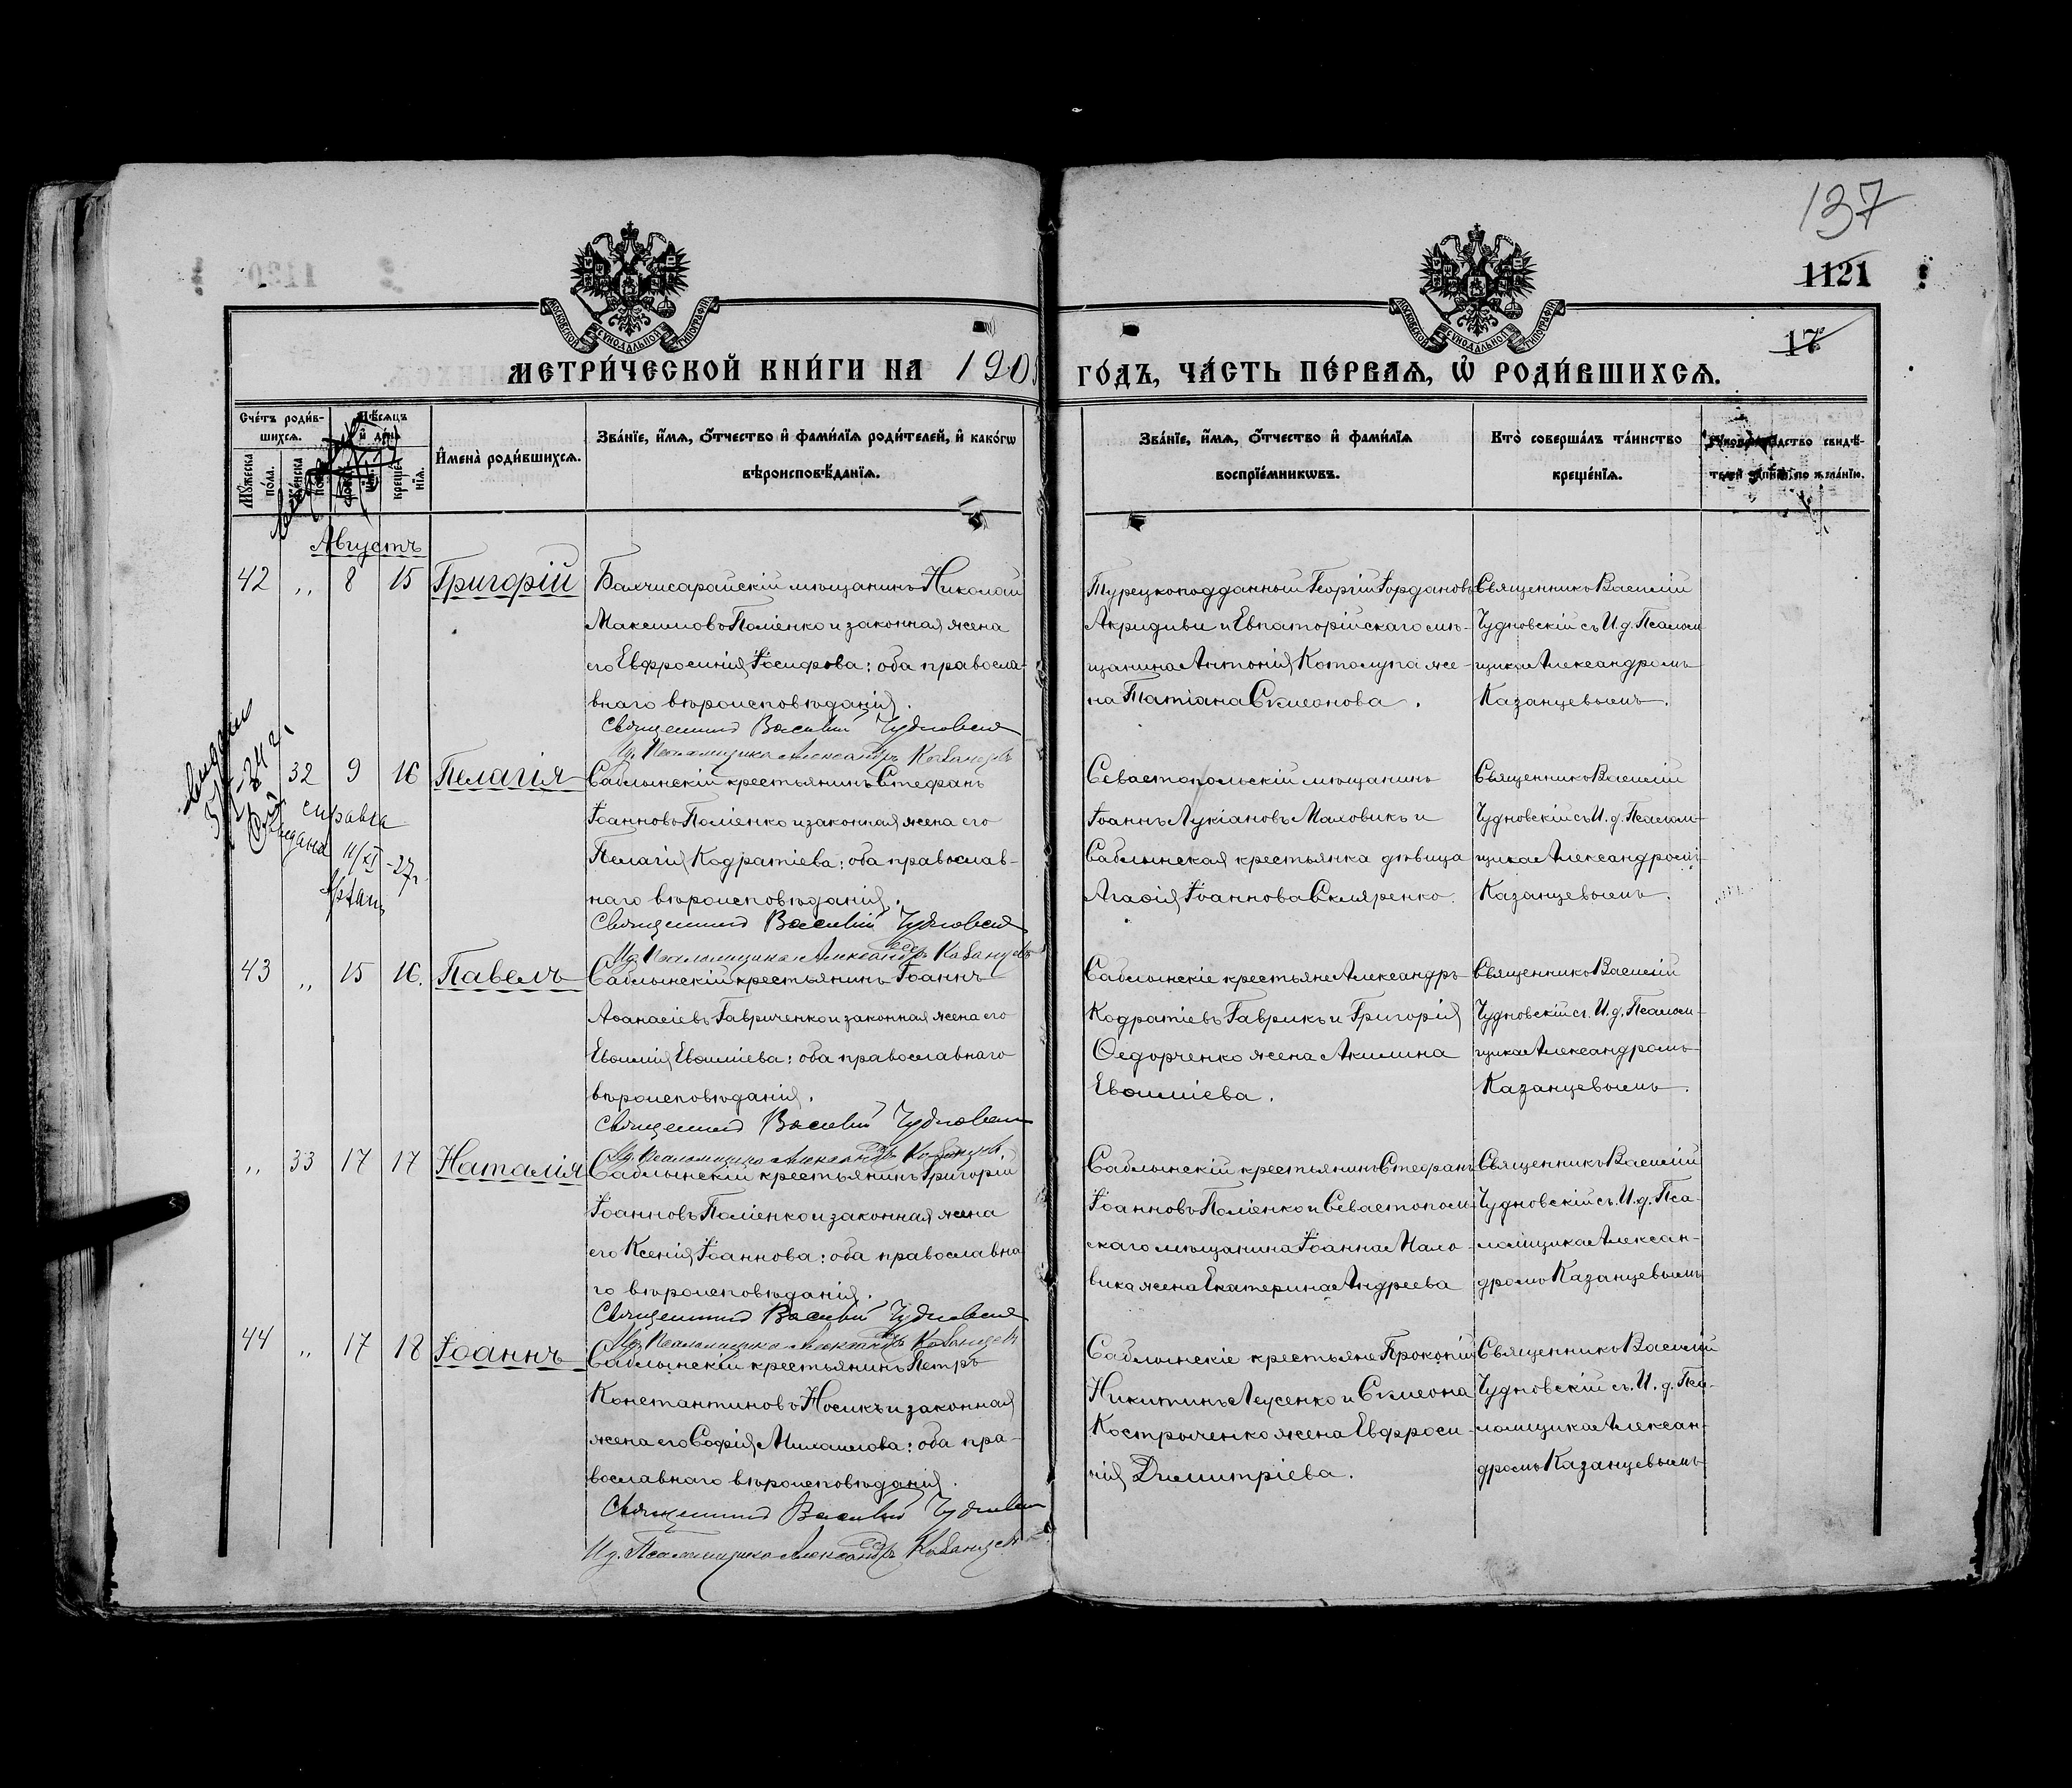 137
1121
17
МОСКОВСКОЙ СѴНОДАЛЬНОЙ ТИПОГРАФІИ
МОСКОВСКОЙ СѴНОДАЛЬНОЙ ТИПОГРАФІИ
МЕТРИ́ЧЕСКОЙ КНИ́ГИ НА 190
ГО́ДЪ, ЧА́СТЬ ПЕ́РВАѦ, Ѽ РОДИ́ВШИХСѦ.
Сче́тъ роди́в-
шихсѧ.
Мѣ́сѧцъ
и҆ де́нь
Мꙋ́жеска по́ла.
Же́нска по́ла.
креще́нїѧ.
И҆мена̀ роди́вшихсѧ.
Зва́нїе, и҆́мѧ, ѻ҆́тчество и҆ фами́лїѧ роди́телей, и҆ како́гѡ
вѣроисповѣ́данїѧ.
Зва́нїе, и҆́мѧ, ѻ҆́тчество и҆ фами́лїѧ
воспрїе́мникѡвъ.
Кто̀ соверша́лъ та́инство
креще́нїѧ.
Рꙋкоприкла́дство свидѣ́-
телей за́писи по жела́нїю.
Августъ
42 „ 8 15 Григорій
Бахчисарайскій мѣщанинъ Николай
Максимовъ Поліенко и законная жена
его Евфросинія Іосифова: оба правосла-
внаго вѣроисповѣданія.
Священникъ Василій Чудновскій
И.д. Псаломщика Александръ Казанцевъ
Турецкоподданный Георгій Іордановъ
Акридиви и Евпаторійскаго мѣ-
щанина Антонія Котолупа же-
на Татіана Симеонова.
Священникъ Василій
Чудновскій съ И. д. Псалом-
щика Александромъ
Казанцевымъ.
32 9 16 Пелагія
справка
выдана
11/XI-27г.
Саблынскій крестьянинъ Стефанъ
Іоанновъ Поліенко и законная жена его
Пелагія Кодратіева: оба православ-
наго вѣроисповѣданія.
Священникъ Василій Чудновскій
И.д. Псаломщика Александръ Казанцевъ
Севастопольскій мѣщанинъ
Іоаннъ Лукіановъ Маловикъ и
Саблынская крестьянка дѣвица
Агаѳія Іоаннова Скляренко.
Священникъ Василій
Чудновскій съ И. д. Псалом-
щика Александромъ
Казанцевымъ.
43 „ 15 16. Павелъ
Саблынскій крестьянинъ Іоаннъ
Аѳанасіевъ Гавриченко и законная жена его
Евѳимія Евѳиміева: оба православнаго
вѣроисповѣданія.
Священникъ Василій Чудновскій
И.д. Псаломщика Александръ Казанцевъ.
Саблынскіе крестьяне Александръ
Кодратіевъ Гаврикъ и Григорія
Ѳедорченко жена Акилина
Евѳиміева.
Священникъ Василій
Чудновскій съ. И. д. Псалом-
щика Александромъ
Казанцевымъ.
„ 33 17 17 Наталія
Саблынскій крестьянинъ Григорій
Іоанновъ Поліенко и законная жена
его Ксенія Іоаннова: оба православна
го вѣроисповѣданія.
Священникъ Василій Чудновскій
И.д. Псаломщика Александръ Казанцевъ
Саблынскій крестьянинъ Стефанъ
Іоанновъ Поліенко и Севастополь-
скаго мѣщанина Іоанна Мало-
вика жена Екатерина Андреева
Священникъ Василій
Чудновскій съ. И. д. Пса-
ломщика Алексан-
дромъ Казанцевымъ
44 „ 17 18 Іоаннъ
Саблынскій крестьянинъ Петръ
Константиновъ Носикъ и законная
жена его Софія Михаилова: оба пра-
вославнаго вѣроисповѣданія.
Священникъ Василій Чудновскій
И.д. Псаломщика Александръ Казанцевъ
Саблынскіе крестьяне Прокопій
Никитинъ Леусенко и Симеона
Кострыченко жена Евфроси-
нія Димитріева.
Священникъ Василій
Чудновскій съ. И. д. Пса-
ломщика Алексан-
дромъ Казанцевымъ